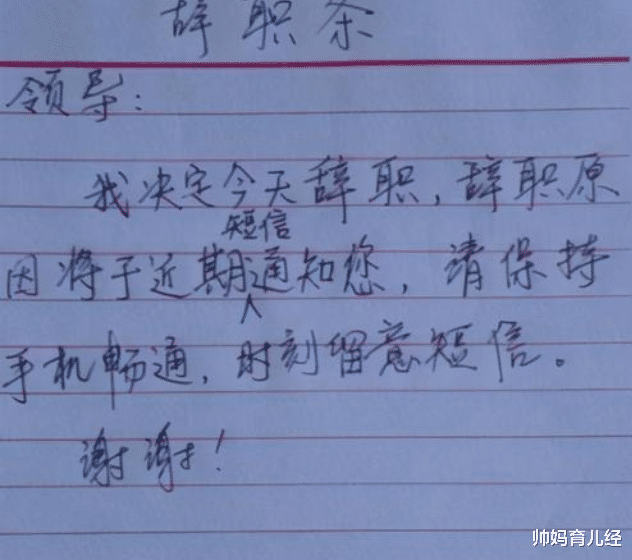 辞职条
领导：
我决定今天辞职，辞职原
因将于近期短信通知您，请保持
手机畅通，时刻留意短信。
谢谢！
帅妈育儿经